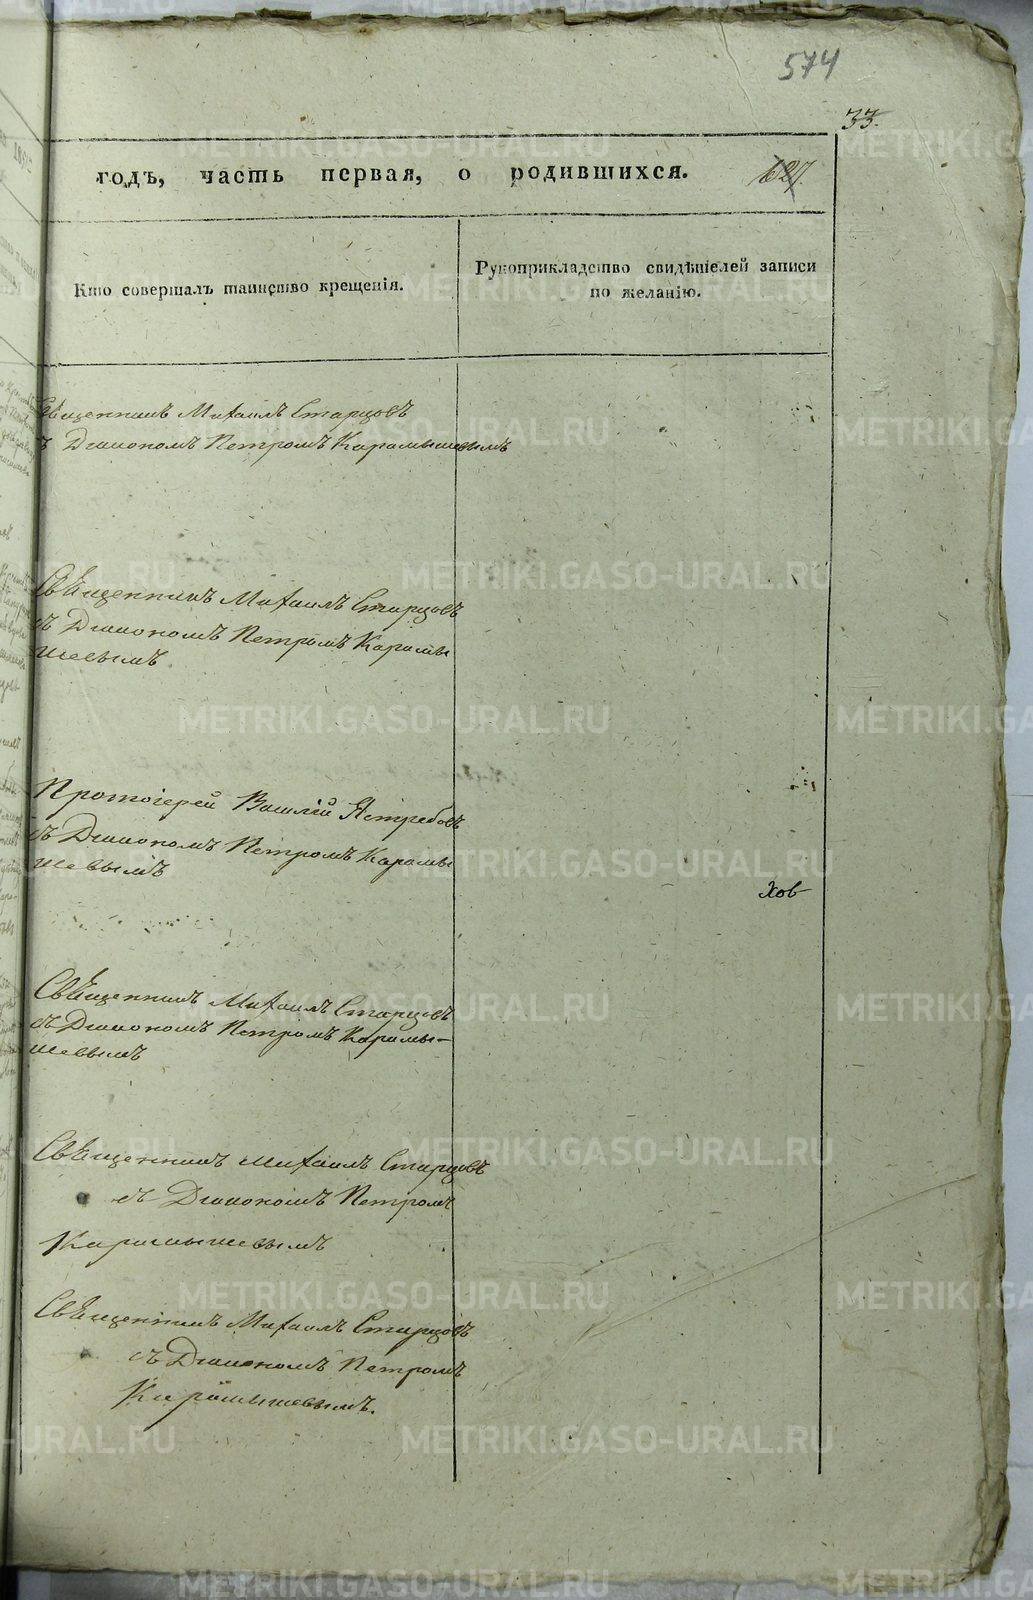 574
33.
годъ, часть первая, о родившихся. 627.
Кто совершалъ таинство крещенія.
Рукоприкладство свидѣтелей записи
по желанію.
Священникъ Михаилъ Старцовъ
съ Діакономъ Петромъ Карамышевымъ
Священникъ Михаилъ Старцовъ
съ Діакономъ Петромъ Карамы
шевымъ
Протоіерей Василій Ястребовъ
съ Діакономъ Петромъ Карамы
шевымъ
хов
Священникъ Михаилъ Старцовъ
съ Діакономъ Петромъ Карамы-
шевымъ
Священникъ Михаилъ Старцовъ
съ Діакономъ Петромъ
Карамышевымъ
Священникъ Михаилъ Старцовъ
съ Діакономъ Петромъ
Карамышевымъ.
METRIKI.GASO-URAL.RU